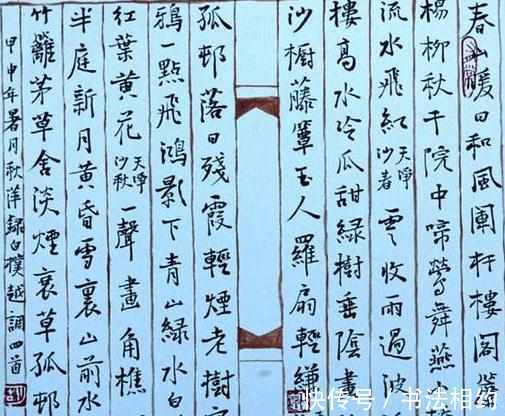 春山暖日和風闌杆樓閣簾
楊柳秋千院中啼鶯舞燕小
流水飛紅天淨沙春雲收雨過波
樓高水冷瓜甜綠樹垂陰畫
沙橱藤簟玉人羅扇輕縑
孤邨落日殘霞輕煙老樹寒
鴉一點飛鴻影下青山綠水白
紅葉黃花天淨沙秋一聲畫角樵
半庭新月黃昏雪裏山前水
竹籬茅草舍淡煙衰草孤邨
甲申年暑月秋萍錄白樸越調四首
快传号/书法相约